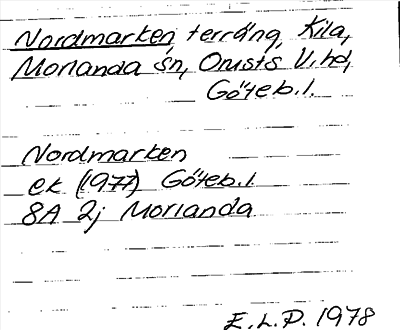 Nordmarken, terräng, Kila,
Morlanda sn, Orusts V. hd,
Göteb. l.
Nordmarken
ek (1977) Göteb. l.
8A 2j Morlanda
E. L. P. 1978